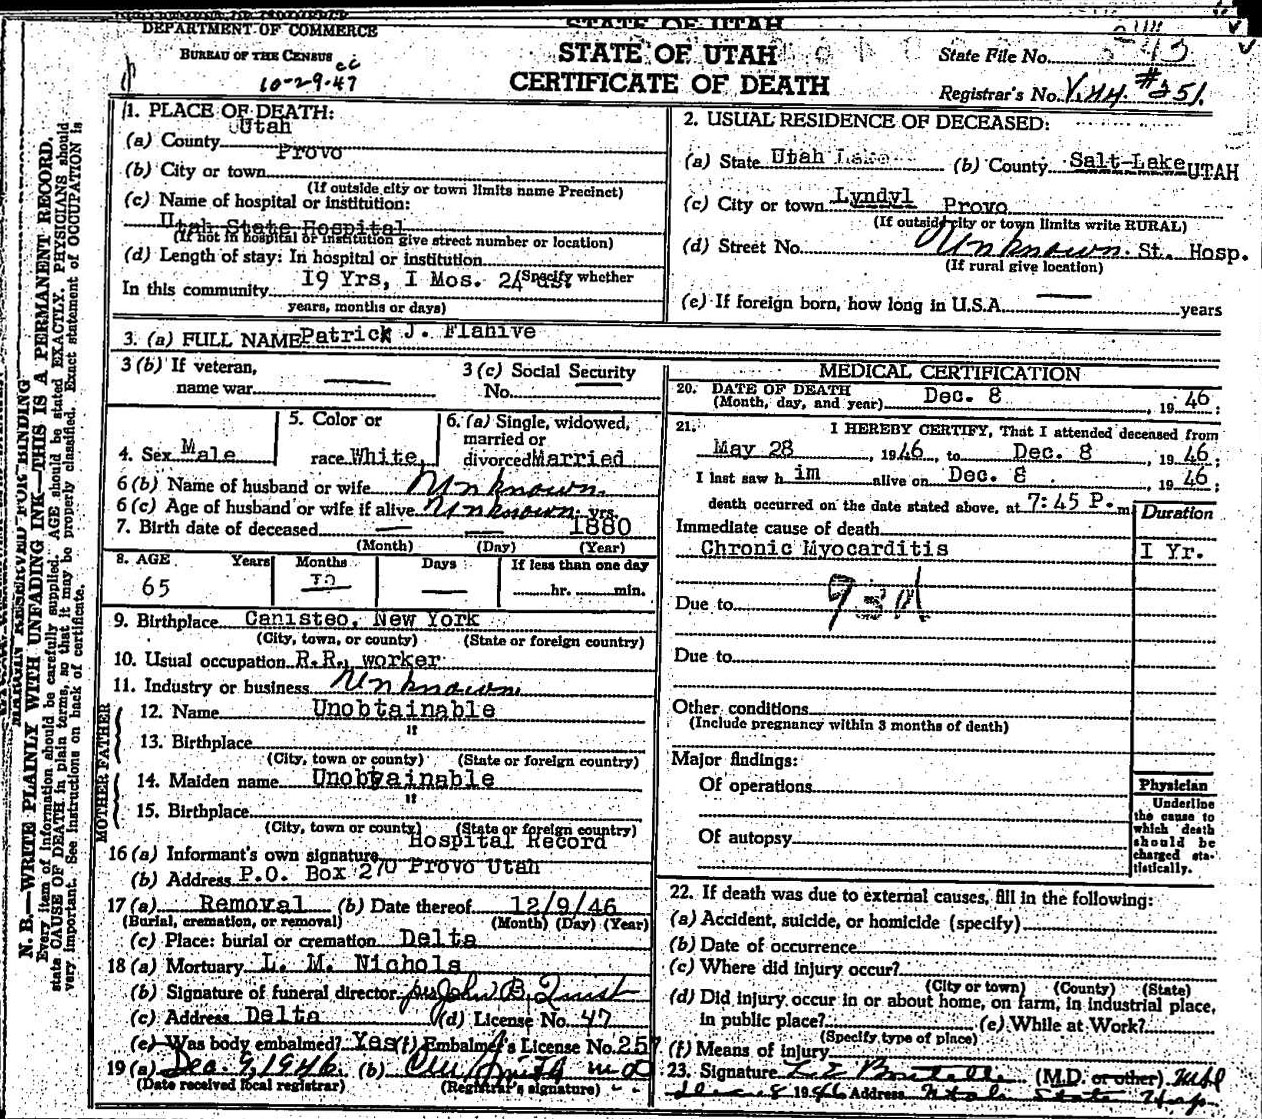 DEPARTMENT OF COMMERCE
BUREAU OF THE CENSUS
10-29-47
STATE OF UTAH
STATE OF UTAH
CERTIFICATE OF DEATH
State File No.
Registrar's No. #251
MARGIN RESERVED FOR BINDING
N. B.—WRITE PLAINLY WITH UNFADING INK—THIS IS A PERMANENT RECORD.
Every item of information should be carefully supplied. AGE should be stated EXACTLY. PHYSICIANS should
state CAUSE OF DEATH in plain terms, so that it may be properly classified. Exact statement of OCCUPATION is
very important. See instructions on back of certificate.
1. PLACE OF DEATH:
(a) County Utah
(b) City or town Provo
(If outside city or town limits name Precinct)
(c) Name of hospital or institution:
Utah State Hospital
(If not in hospital or institution give street number or location)
(d) Length of stay: In hospital or institution
In this community 19 Yrs, I Mos. 24 (Specify whether
years, months or days)
2. USUAL RESIDENCE OF DECEASED:
(a) State Utah (b) County Salt-Lake UTAH
(c) City or town Lyndyl Provo
(If outside city or town limits write RURAL)
(d) Street No. Unknown. St. Hosp.
(If rural give location)
(e) If foreign born, how long in U.S.A. — years
3. (a) FULL NAME Patrick J. Flahive
3 (b) If veteran, name war —
3 (c) Social Security No. —
4. Sex Male
5. Color or race White
6. (a) Single, widowed, married or divorced Married
6 (b) Name of husband or wife Unknown.
6 (c) Age of husband or wife if alive Unknown. yrs.
7. Birth date of deceased — — 1880
(Month) (Day) (Year)
8. AGE Years Months Days If less than one day
65 10 — hr. min.
9. Birthplace Canisteo, New York
(City, town, or county) (State or foreign country)
10. Usual occupation R.R. worker
11. Industry or business Unknown
FATHER
12. Name Unobtainable
13. Birthplace "
(City, town or county) (State or foreign country)
MOTHER
14. Maiden name Unobtainable
15. Birthplace "
(City, town or county) (State or foreign country)
16 (a) Informant's own signature Hospital Record
(b) Address P.O. Box 270 Provo Utah
17 (a) Removal (b) Date thereof 12/9/46
(Burial, cremation, or removal) (Month) (Day) (Year)
(c) Place: burial or cremation Delta
18 (a) Mortuary L. M. Nichols
(b) Signature of funeral director per John B. Quist
(c) Address Delta (d) License No. 47
(e) Was body embalmed? Yes (f) Embalmer's License No. 257
19 (a) Dec. 9, 1946. (b) Smith M D
(Date received local registrar) (Registrar's signature)
MEDICAL CERTIFICATION
20. DATE OF DEATH
(Month, day, and year) Dec. 8, 1946;
21. I HEREBY CERTIFY, That I attended deceased from
May 28, 1946, to Dec. 8, 1946;
I last saw him alive on Dec. 8, 1946;
death occurred on the date stated above, at 7:45 P. m.
Duration
Immediate cause of death
Chronic Myocarditis I Yr.
Due to 93d
Due to
Other conditions
(Include pregnancy within 3 months of death)
Major findings:
Of operations
Of autopsy
Physician
Underline
the cause to
which death
should be
charged sta-
tistically.
22. If death was due to external causes, fill in the following:
(a) Accident, suicide, or homicide (specify)
(b) Date of occurrence
(c) Where did injury occur?
(City or town) (County) (State)
(d) Did injury occur in or about home, on farm, in industrial place,
in public place? (e) While at Work?
(Specify type of place)
(f) Means of injury
23. Signature (M.D. or other)
Dec. 8 1946 Address Utah State Hosp.